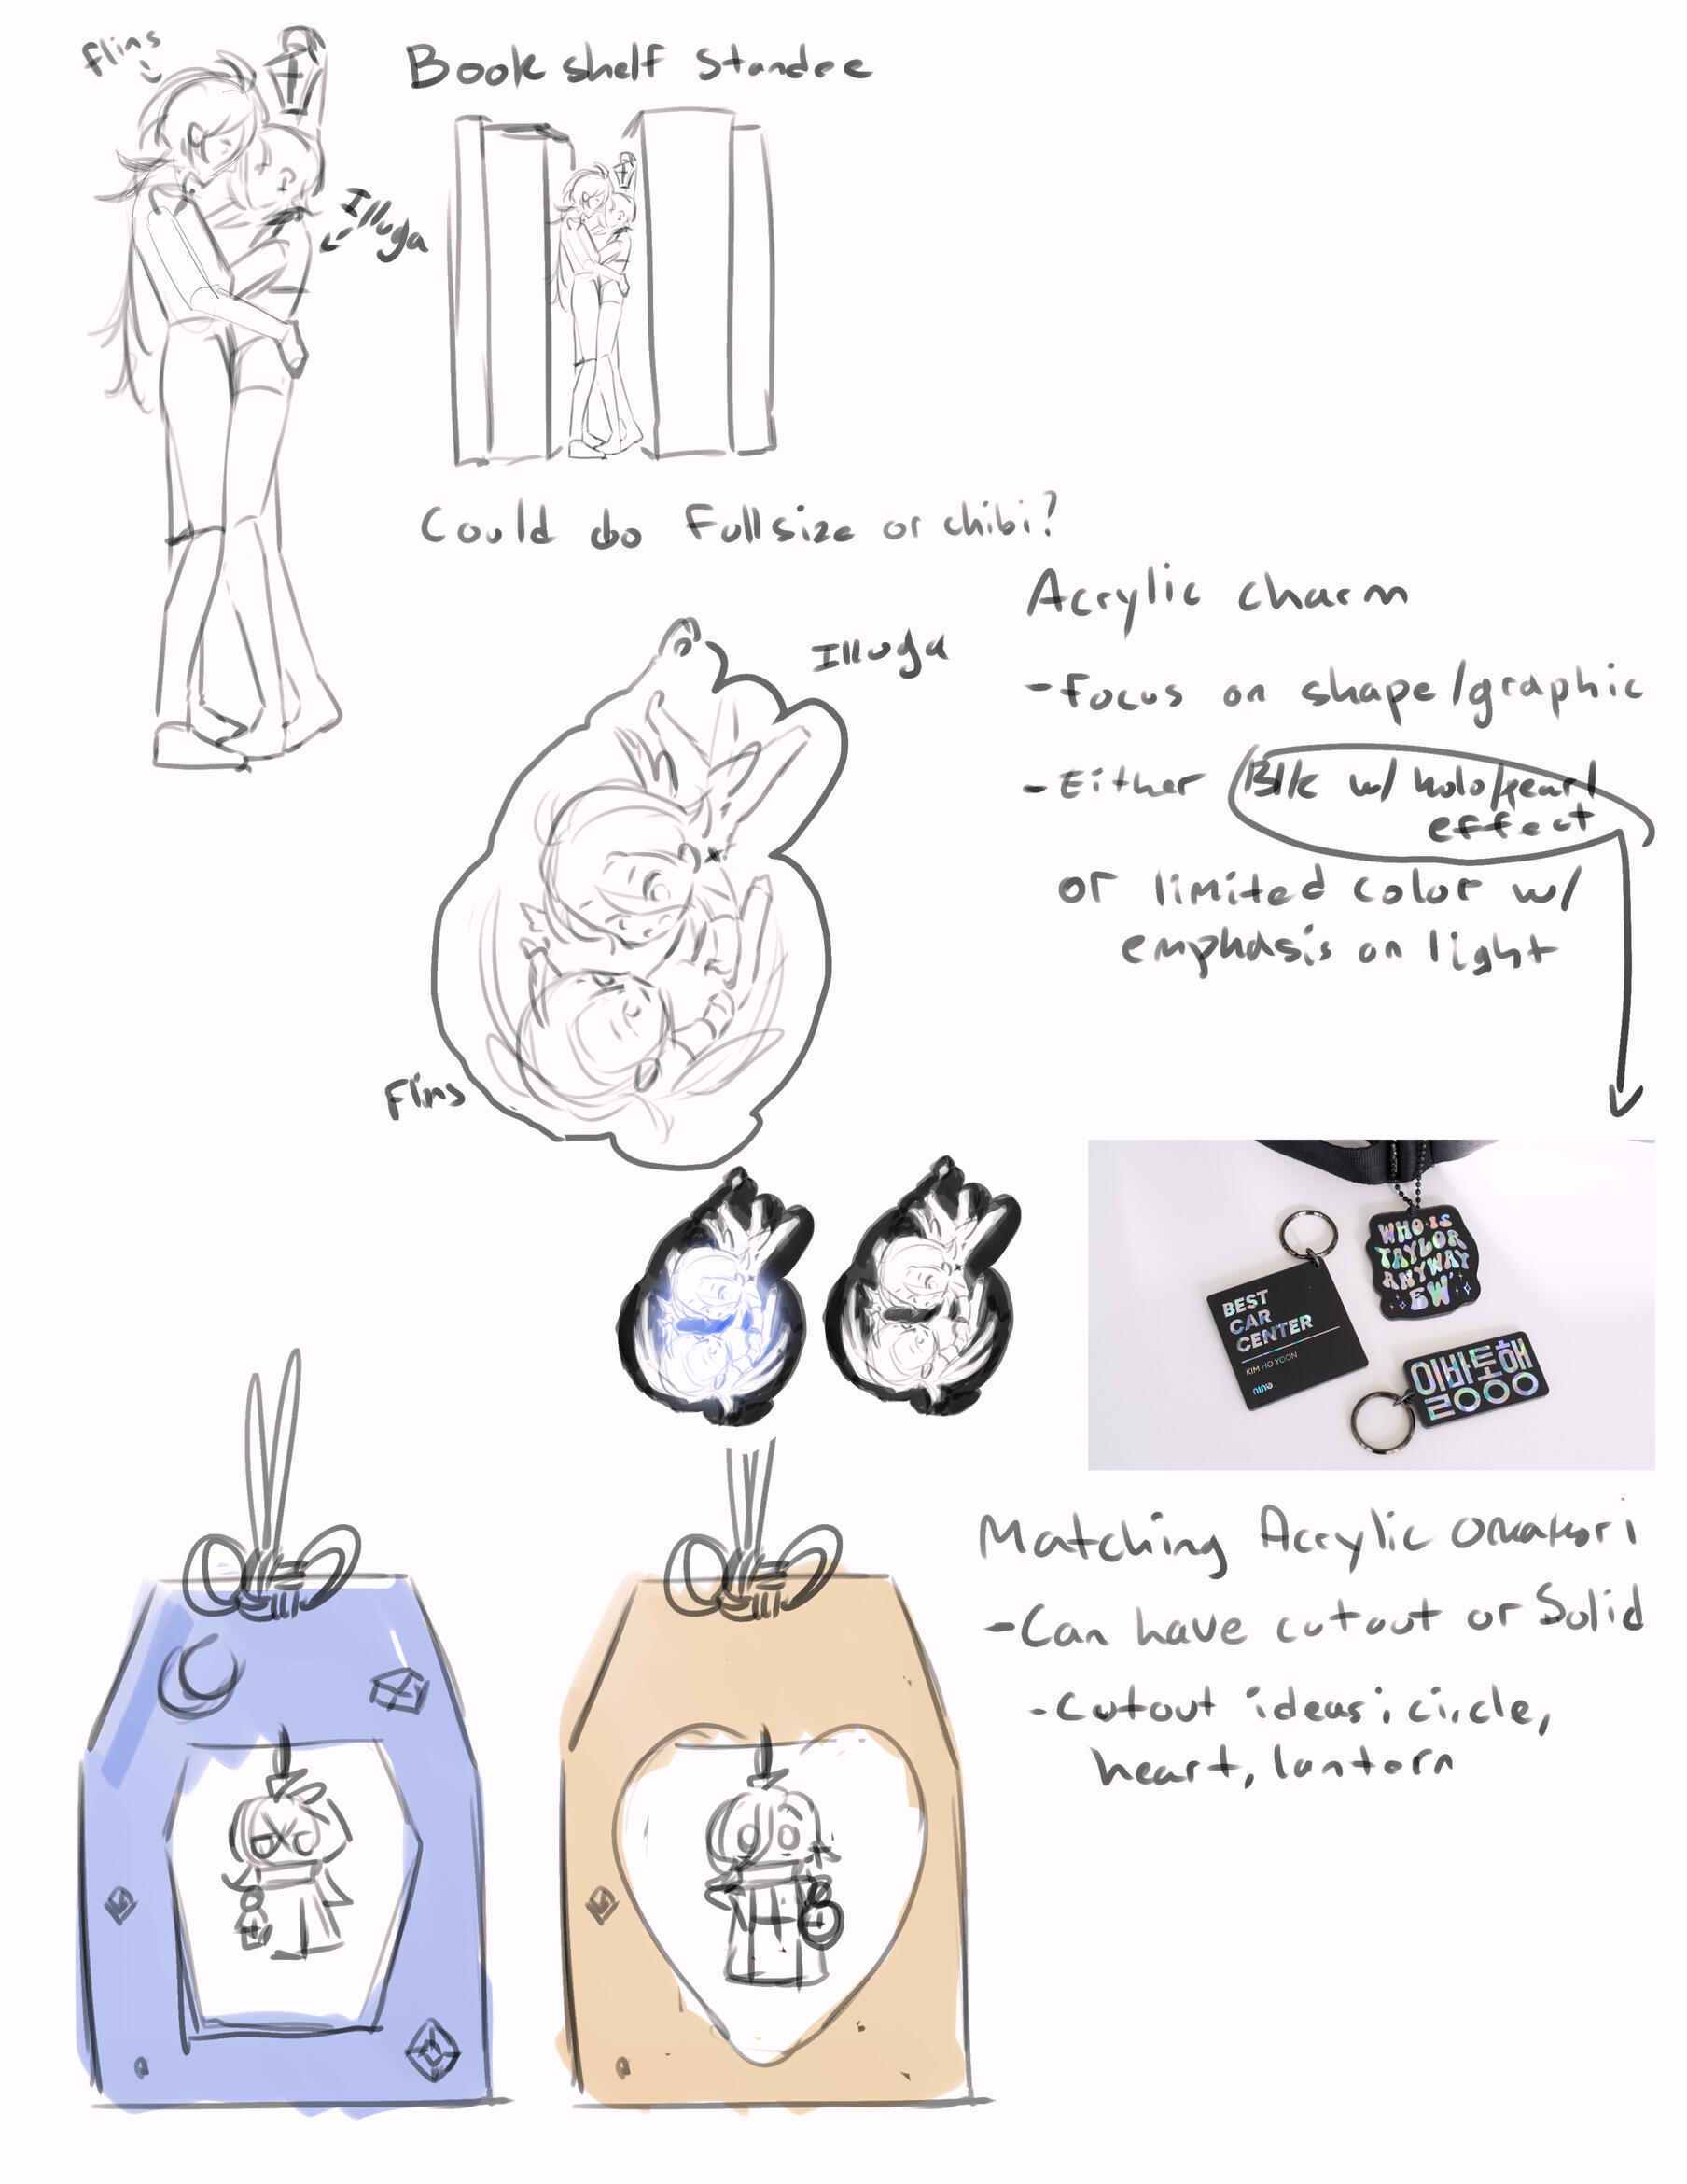 Flins
Book shelf Standee
Illuga
Could do Fullsize or chibi?
Illuga
Flins
Acrylic charm
-Focus on shape/graphic
-Either Blk w/ holo/pearl
effect
or limited color w/
emphasis on light
WHO IS
TAYLOR
ANYWAY
EW
BEST
CAR
CENTER
KIM HO YOON
nino
일바토행
Matching Acrylic omamori
-Can have cutout or Solid
-Cutout ideas: circle,
heart, lantern